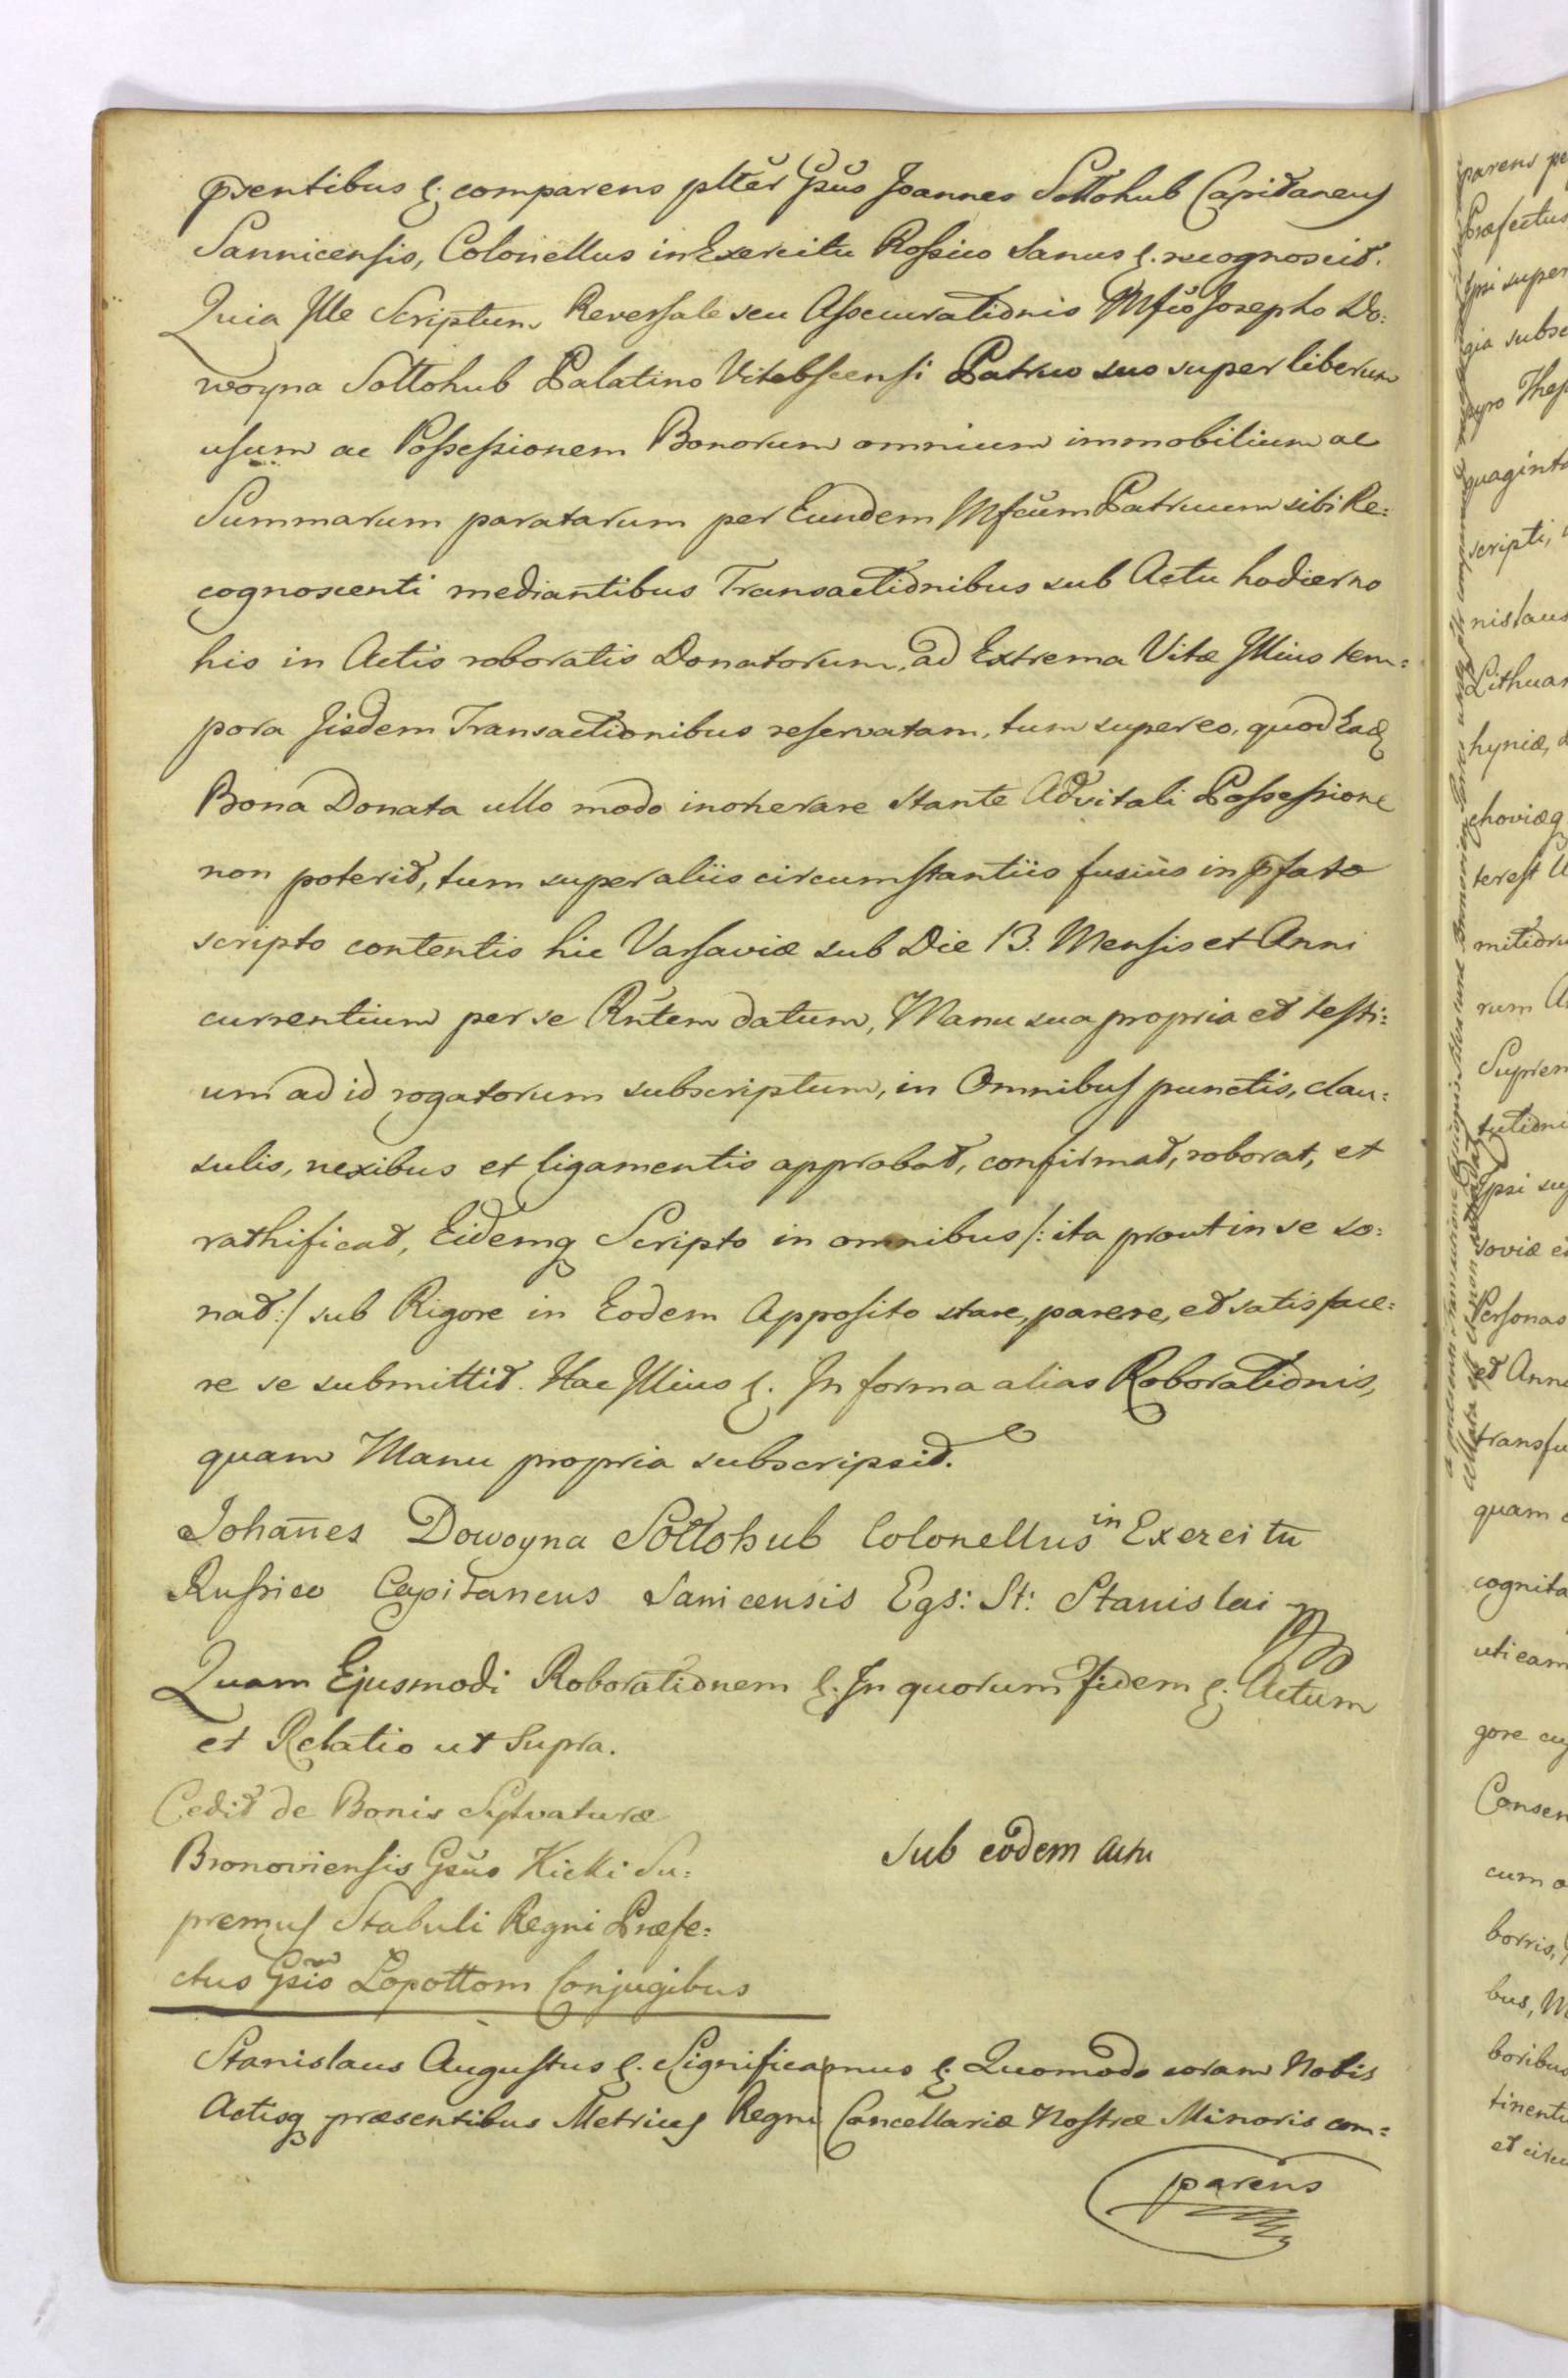 pñsentibus &. comparens plter Gsūs Joannes Sołłohub Capitaneus
Sannicensis, Colonellus in Exercitu Rossico Sanus &. recognoscit.
Quia Ille Scriptum Reversale seu Assecurationis Mfco Josepho Do:
woyna Sołłohub Palatino Vitebscensi Patruo suo super liberum
usum ac Possessionem Bonorum omnium immobilium ac
Summarum paratarum per Eundem Mfcum Patruum sibi Re:
cognoscenti mediantibus Transactionibus sub Actu hodierno
his in Actis roboratis Donatorum, ad Extrema Vitæ Illius tem:
pora Jisdem Transactionibus reservatam, tum super eo, quod Eadq
Bona Donata ullo modo inonerare stante Advitali Possessione
non poterit, tum super aliis circumstantiis fusiùs in pfato
scripto contentis hic Varsaviæ sub Die 13. Mensis et Anni
currentium per se Rñtem datum, Manu sua propria et testi:
um ad id rogatorum subscriptum, in Omnibus punctis, clau:
sulis, nexibus et ligamentis approbat, confirmat, roborat, et
rathificat, Eidemq Scripto in omnibus /: ita prout in se so:
nat :/ sub Rigore in Eodem Apposito stare, parere, et satisface:
re se submittit. Hac Illius &. In forma alias Roborationis,
quam Manu propria subscripsit.
Johañes Dowoyna Sołłohub Colonellus in Exercitu
Russico Capitaneus Sanicensis Eqs: St: Stanislai
Quam Ejusmodi Roborationem &. In quorum Fidem &. Actum
et Relatio ut Supra.
Cedit de Bonis Sylvaturæ
Bronoviensis Gsūs Kicki Su:
premus Stabuli Regni Præfe:
ctus Gsis Łopottom Conjugibus
Sub eodem Actu
Stanislaus Augustus &. Significamus &. Quomodo coram Nobis
Actisq præsentibus Metrices Regni Cancellariæ Nostræ Minoris com:
parens
parens
Præfectus
Ipsi super
gia
pro
quaginta
scripti,
nislaus
Lithuan
hyniæ,
choviæq
terest
rum
Suprem
Ipsi
soviæ
Personas
et Anno
quam
cognita
uti eam
gore
Consen
cum
bus,
boribus
tinenti